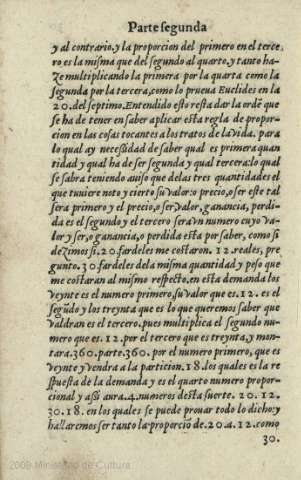 Parte segunda
y al contrario.y la proporcion del primero en el terce
ro es la misma que del segundo al quarto,y tanto ha-
ze multiplicando la primera por la quarta como la
segunda por la tercera,como lo prueva Euclides en la
20.del septimo.Entendido esto resta dar la ordẽ que
se ha de tener en saber aplicar esta regla de propor-
cion en las cosas tocantes a los tratos de la vida. para
lo qual ay necessidad de saber qual es primera quan
tidad y qual ha de ser segunda y qual tercera:lo qual
se sabra teniendo auiso que de las tres quantidades el
que tuuiere noto y cierto su valor:o precio,o ser este tal
sera primero y el precio,o ser,valor,ganancia, perdi-
da es el segundo y el tercero sera vn numero cuyo va-
lor y ser,o ganancia,o perdida esta por saber, como si
dezimos si.20.fardeles me costaron. 12.reales, pre
gunto.30.fardeles dela misma quantidad y peso que
me costaran al mismo respecto.en esta demanda los
veynte es el numero primero,su valor que es.12. es el
segũdo y los treynta que es lo que queremos saber que
valdran es el tercero.pues multiplica el segundo nu-
mero que es.12.por el tercero que es treynta,y mon-
tara.360.parte.360.por el numero primero, que es
veynte y vendra a la particion.18.los quales es la re
spuesta de la demanda y es el quarto numero propor-
cional y assi aura.4.numeros desta suerte. 20.12.
30.18. en los quales se puede prouar todo lo dicho:y
hallaremos ser tanto la proporciõ de.20.a.12.como
30.
2009 Ministerio de Cultura